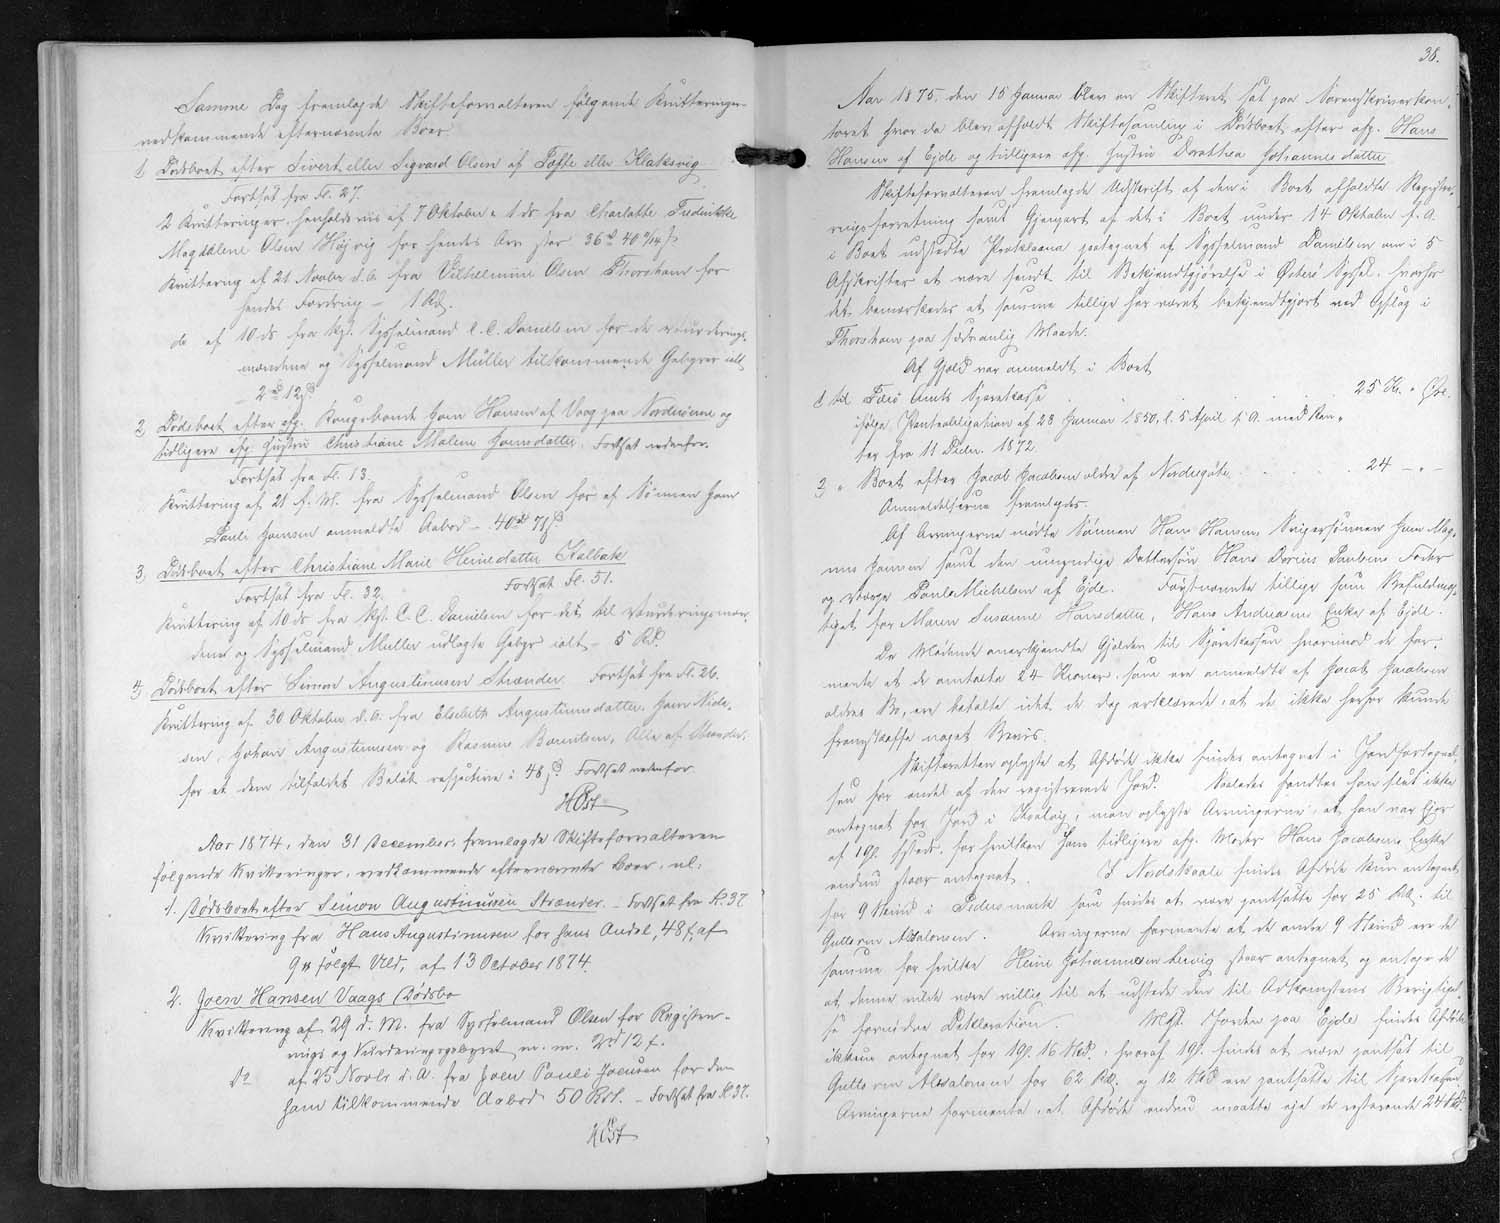 Samme Dag fremlagde Skifteforvalteren følgende Kvitteringer
vedkommende efternævnte Boer
1, Dødsboet efter Sivert eller Sigvard Olsen af Tofte eller Klaksvig
Fortsat fra Fl. 27.
2 Kvitteringer, henholdsvis af 7 Oktober & 1 ds fra Charlotte Frederikke
Magdalene Olsen Højvig for hendes Arv stor 36 40
Kvittering af 21 Novbr d. A. fra Vilhelmine Olsen Thorshavn for
hendes Fordring – 1 Rd.
do af 10 ds fra kst. Sysselmand C. C. Danielsen for de Vurderings-
mændene og Sysselmand Müller tilkommende Gebyrer ialt
– 2 12
2, Dødsboet efter afg. Kongsbonde Joen Hansen af Vaag paa Norderøerne og
tidligere afg. Hustru Christiane Malene Joensdatter. Fortsat nedenfor.
Fortsat fra Fl. 13.
Kvittering af 21 f. M. fra Sysselmand Olsen for af Sønnen Joen
Pauli Joensen anmeldte Aabod – 40 71
3, Dødsboet efter Christiane Marie Heinesdatter Kalbak
Fortsat fra Fl. 32. Fortsat Fl. 51.
Kvittering af 10 ds fra kst. C. C. Danielsen for det til Vurderingsmæn-
dene og Sysselmand Müller udlagte Gebyr ialt – 5 Rd.
4, Dødsboet efter Simon Augustinussen Strænder. Fortsat fra Fl. 26.
Kvittering af 30 Oktober d. A. fra Elsebeth Augustinusdatter, Joen
Johan Augustinussen og Rasmus Berentsen, Alle af Strænder,
for et dem tilfaldet Beløb respective i 48 Fortsat nedenfor.
HØst
Aar 1874, den 31 December, fremlagde Skifteforvalteren
følgende Kvitteringer, vedkommende efternævnte Boer, nl:
1. Dødsboet efter Simon Augustinussen Strænder. – Fortsat fra Fl. 37.
Kvittering fra Hans Augustinussen for hans Andel, 48 f, af
følgt Uld, af 13 October 1874.
2. Joen Hansen Vaags Dødsbo
Kvittering af 29 d. M. fra Sysselmand Olsen for Registre-
rings og Vurderingsgebyret m. m. 2 12
do af 25 Novbr d. A. fra Joen Pauli Joensen for den
ham tilkommende Aabod 50 Rdl. – Fortsat fra Fl 37.
HØst
38.
Aar 1875, den 15 Januar blev en Skifteret sat paa Sorenskriverkon-
toret hvor da blev afholdt Skiftesamling i Dødsboet efter afg. Hans
Hansen af Ejde og tidligere afg. Hustru Dorothea Johannesdatter
Skifteforvalteren fremlagde Udskrift af den i Boet afholdte Registre-
ringsforretning samt Gjenpart af det i Boet under 14 Oktober f. A.
i Boet udstedte Proklama paategnet af Sysselmand Danielsen om i 5
Afskrifter at være sendt til Bekjendtgjørelse i Østerø Syssel, hvorhos
det bemærkedes at samme tillige har været bekjendtgjort ved Opslag i
Thorshavn paa sædvanlig Maade.
Af Gjæld var anmeldt i Boet
1 til Færø Amts Sparekasse 25 Kr. " Øre.
ifølge Panteobligation af 28 Januar 1850, l. 5 April s. A. med Ren-
ter fra 11 Decbr. 1872.
2, " Boet efter Jacob Jacobsen ældre af Nordregøte 24 – " –
Anmeldelserne fremlagdes.
Af Arvingerne mødte Sønnen Hans Hansen, Svigersønnen Joen Mag-
nus Joensen samt den umyndige Dattersøn Hans Dorius Paulsens Fader
og Værge Poul Michelsen af Ejde. Førstnævnte tillige som Befuldmæg-
tiget for Maren Susanne Hansdatter, Hans Andreasens Enke af Ejde.
De Mødende anerkjendte Gjælden til Sparekassen hvorimod de for-
mente at de omtalte 24 Kroner, som ere anmeldte af Jacob Jacobsen
ældres Bo, ere betalte idet de dog erklærede, at de ikke herfor kunde
fremskaffe noget Bevis.
Skifteretten oplyste at Afdøde ikke findes antegnet i Jordfortegnel-
sen for endel af den registrerede Jord. Saaledes fandtes han slet ikke
antegnet for Jord i Kvalvig, men oplyste Arvingerne at han var Ejer
af 1 gl. sstds. for hvilken hans tidligere afg. Moder Hans Jacobsens Enke
endnu staar antegnet. I Nordskaale findes Afdøde kun antegnet
for 9 Skind i Pedersmark som findes at være pantsatte for 25 Rd. til
Gutterm Absalonsen. Arvingerne formente at de andre 9 Skind ere de
samme for hvilke Heine Johannesen staar antegnet og antage de
at denne vilde være villig til at udstede den til Adkomstens Berigtigel-
se fornødne Deklaration. Mht. Jorden paa Ejde findes Afdøde
ikkun antegnet for 1 gl. 16 Skd., hvoraf 1 gl. findes at være pantsat til
Gutterm Absalonsen for 62 Rd. og 12 Skd ere pantsatte til Sparekassen.
Arvingerne formente, at Afdøde endnu maatte eje de resterende 24 Skd.